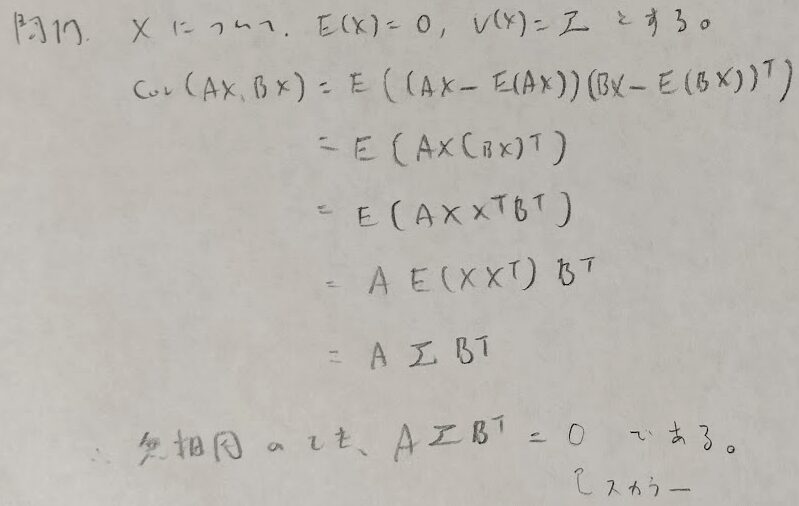 問17. Xについて. E(X)=0, V(X)=Σ とする。
Cov(AX, BX) = E((AX - E(AX))(BX - E(BX))ᵀ)
= E(AX(BX)ᵀ)
= E(AXXᵀBᵀ)
= A E(XXᵀ) Bᵀ
= A Σ Bᵀ
∴ 無相関のとき、AΣBᵀ = 0 である。
スカラー